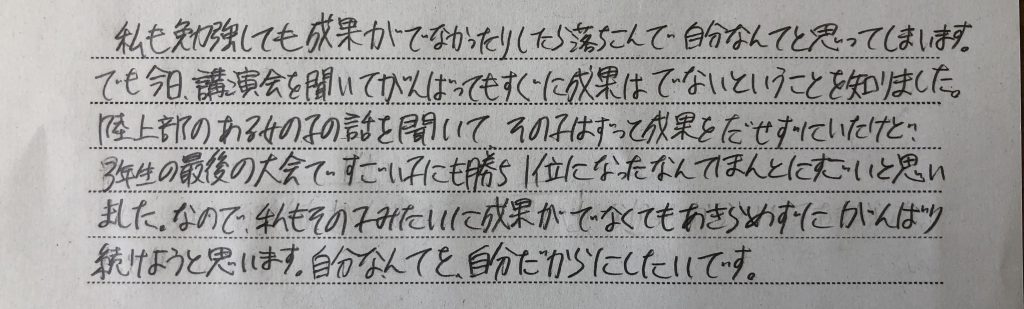 私も勉強しても成果がでなかったりしたら落ちこんで自分なんてと思ってしまいます。
でも今日、講演会を聞いてがんばってもすぐに成果はでないということを知りました。
陸上部のある女の子の話を聞いて、その子はずっと成果をだせずにいたけど、
3年生の最後の大会ですごい子にも勝ち1位になったなんてほんとにすごいと思い
ました。なので、私もその子みたいに成果がでなくてもあきらめずにがんばり
続けようと思います。自分なんてを、自分だからにしたいです。